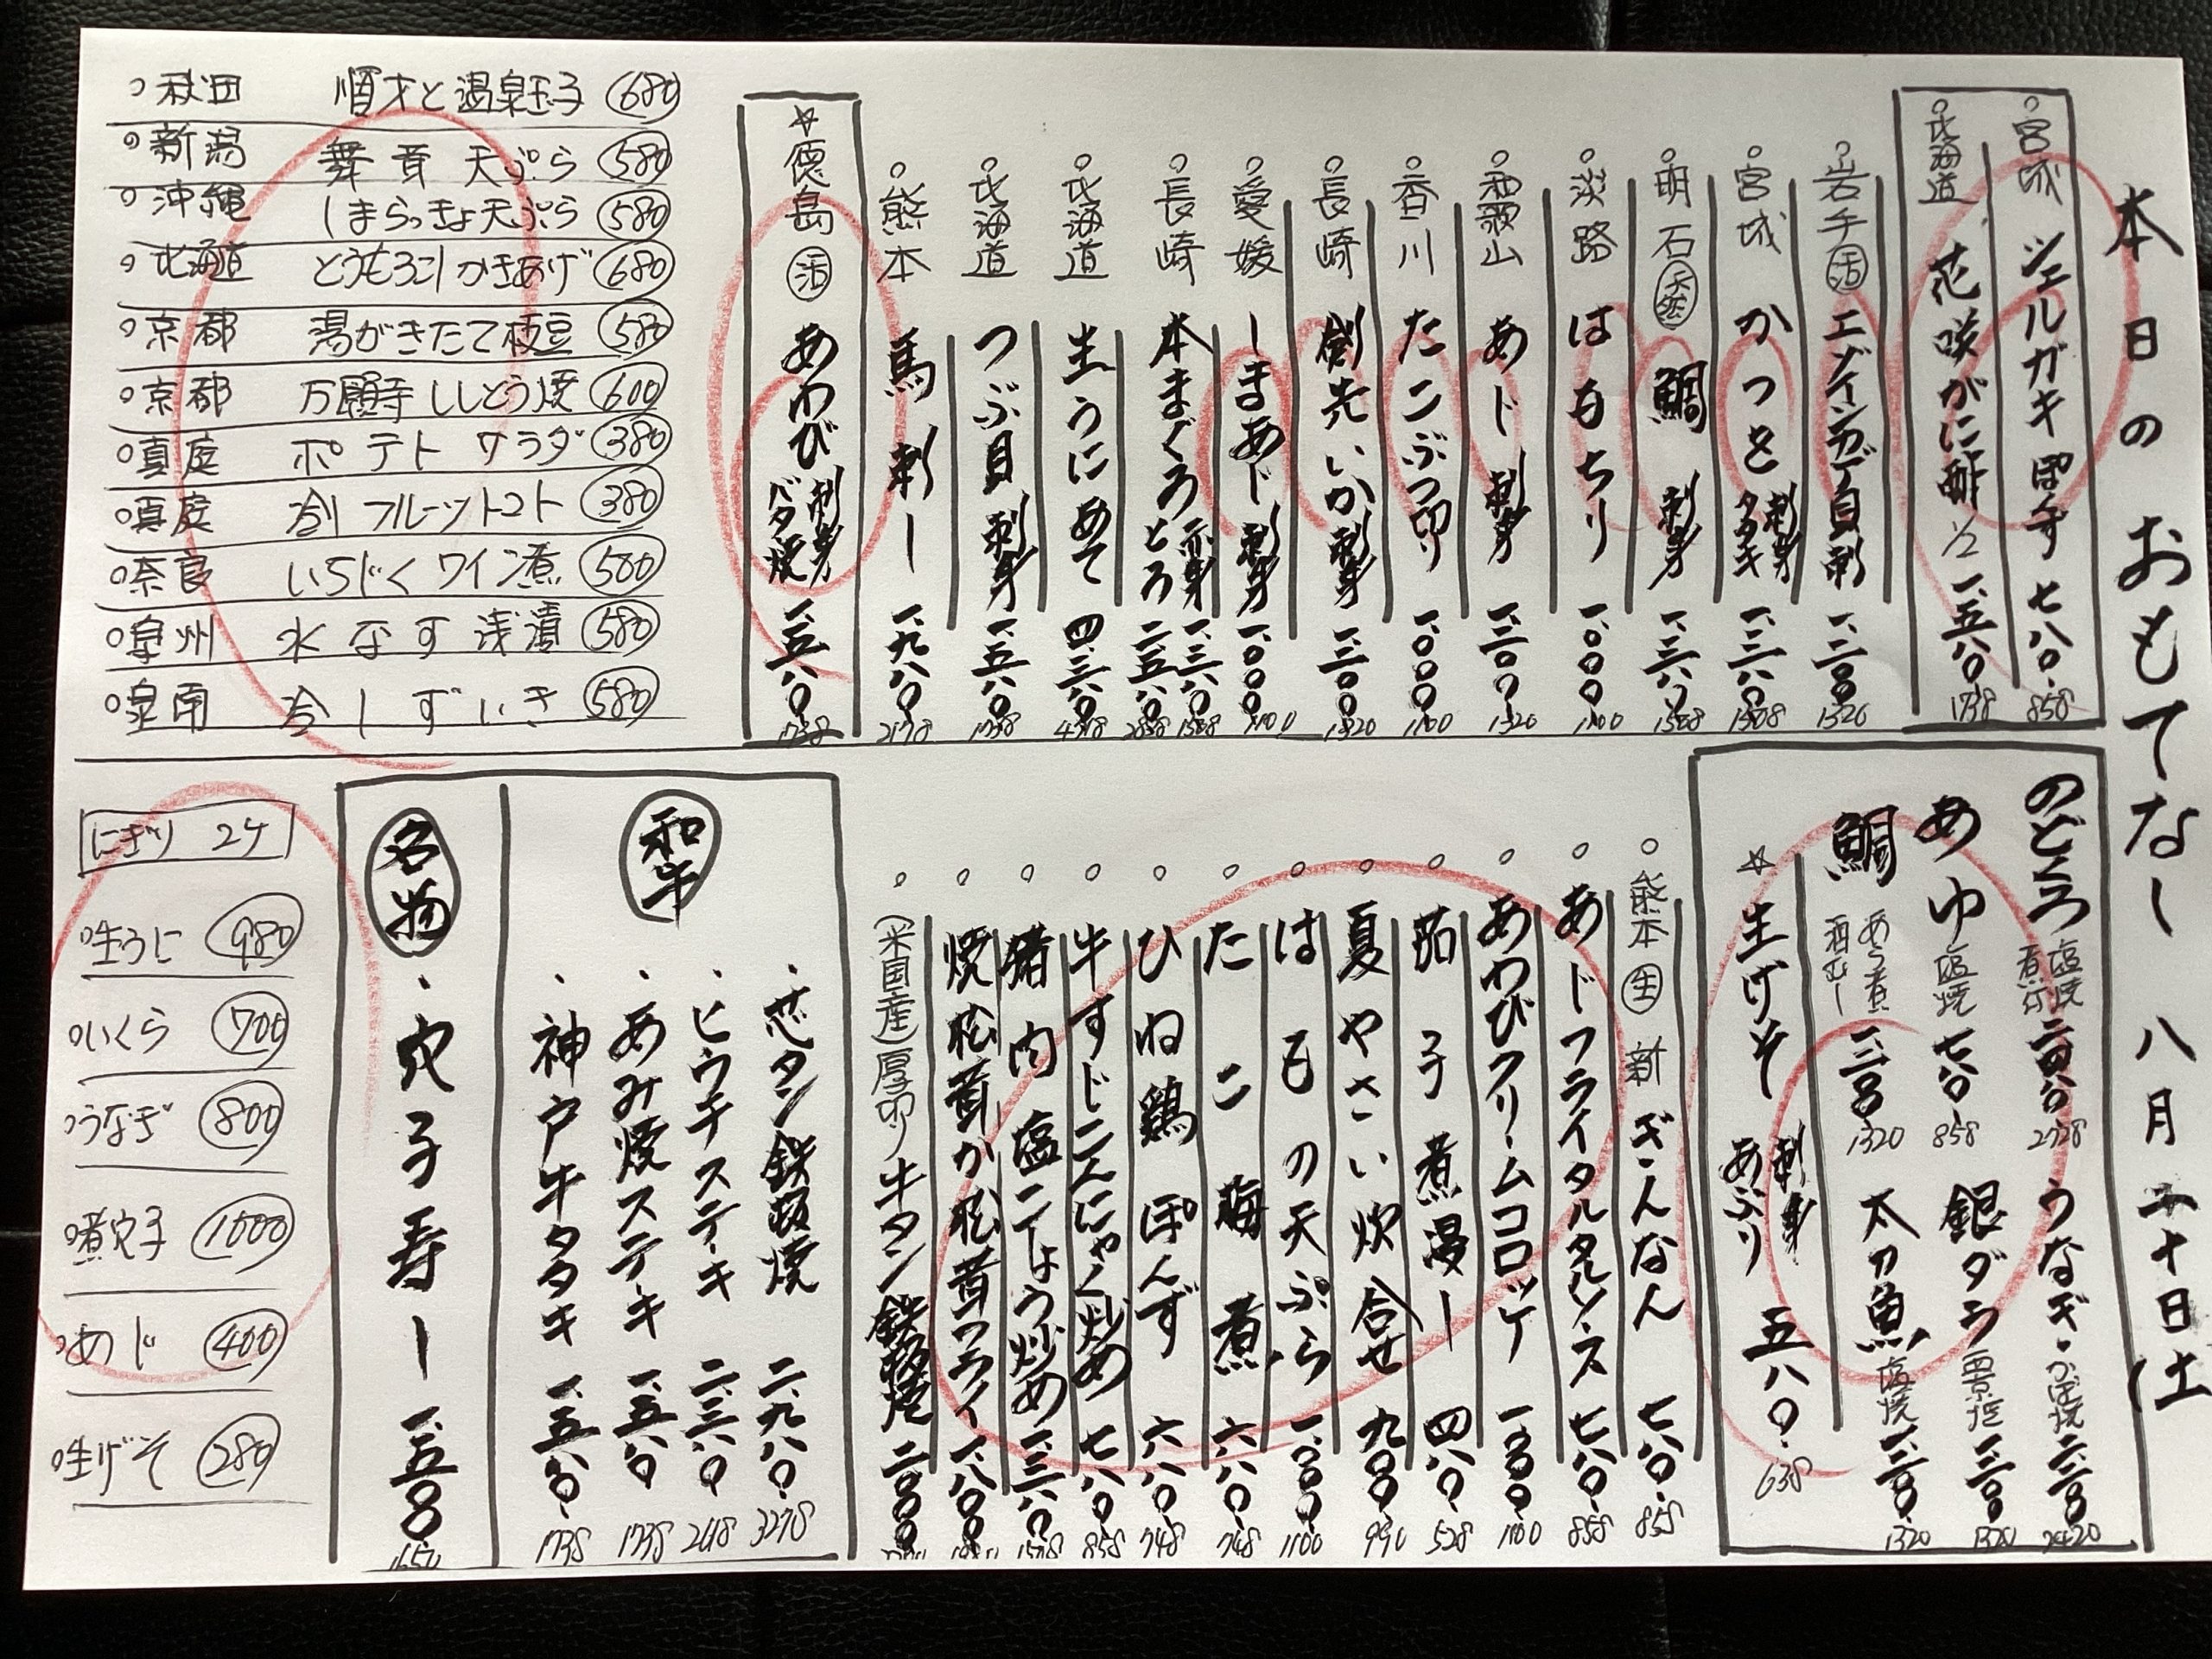 本日のおもてなし 八月二十日(土
○宮城 シェルガキ ぽん酢 七八〇. 858
○北海道 花咲がに酢 1/2 一、五八〇 1738
○岩手 活 エゾイシカゲ貝刺 一、二〇〇 1320
○宮城 かつを 刺身 タタキ 一、三八〇 1508
○明石 天然 鯛 刺身 一、三八〇 1508
○淡路 はもちり 一、〇〇〇 1100
○和歌山 あじ 刺身 一、二〇〇 1320
○香川 たこぶつ切り 一、〇〇〇 1100
○長崎 剣先いか刺身 一、二〇〇 1320
○愛媛 しまあじ 刺身 一、〇〇〇 1100
○長崎 本まぐろ 赤身 一、三八〇 1508 とろ 二、五八〇 2838
○北海道 生うにあて 四、三八〇 4818
○北海道 つぶ貝 刺身 一、五八〇 1738
○熊本 馬刺し 一、九八〇 2178
☆徳島 活 あわび 刺身 バタ焼 一、五八〇 1738
○秋田 順才と温泉玉子 680
○新潟 舞茸 天ぷら 580
○沖縄 しまらっきょ天ぷら 580
○北海道 とうもろこしかきあげ 680
○京都 湯がきたて枝豆 580
○京都 万願寺ししとう焼 600
○真庭 ポテトサラダ 380
○真庭 冷しフルーツトマト 380
○奈良 いちじくワイン煮 580
○泉州 水なす浅漬 580
○泉南 冷しずいき 580
のどぐろ 塩焼 煮付 二、四八〇 2728 うなぎ・かば焼 二、二〇〇 2420
あゆ 塩焼 七八〇 858 銀ダラ 西京焼 一、二〇〇 1320
鯛 あら煮 酒むし 一、二〇〇 1320 太刀魚 塩焼 一、二〇〇 1320
☆生げそ 刺身 あぶり 五八〇. 638
○熊本 生 新ぎんなん 七八〇. 858
○あじフライタルタルソース 七八〇. 858
○あわびクリームコロッケ 一、〇〇〇 1100
○茄子煮浸し 四八〇. 528
○夏やさい炊合せ 九〇〇. 990
○はもの天ぷら 一、〇〇〇 1100
○たこ梅煮 六八〇. 748
○ひね鶏ぽんず 六八〇. 748
○牛すじこんにゃく炒め 七八〇. 858
○猪肉塩こしょう炒め 一、三八〇
○焼松茸か松茸フライ 一、八〇〇
○(米国産)厚切り牛タン鉄板焼 二、〇〇〇
和牛
・芯タン鉄板焼 二、九八〇. 3278
・ヒウチステーキ 二、三八〇
・あみ焼ステーキ 一、五八〇 1738
・神戸牛タタキ 一、五八〇. 1738
名物
・穴子寿し 一、五〇〇. 1650
にぎり 2ケ
○生うに 980
○いくら 700
○うなぎ 800
○煮穴子 1000
○あじ 400
○生げそ 280